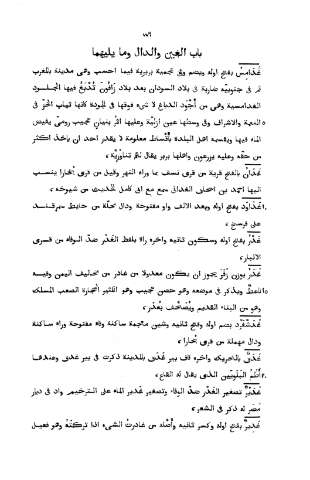 ٧٧٦
باب الغين والدال وما يليهما
غَدَامِسُ بفتح اوله ويضم وفى عجمية بربرية فيما احسب وهى مدينة بالمغرب
ثم فى جنوبيه ضاربة فى بلاد السودان بعد بلاد زافُون تُدْبَغ فيها الجلود
الغدامسية وهى من أجْوَد الدباغ لا شىء فوقها فى الجودة كانها ثياب الخزّ فى
النعمة والاشراف وفى وسطها عين ازلية وعليها اثر بنيان عجيب رومى يفيض
الماء فيها ويقسمه اهل البلدة بأَقْساط معلومة لا يقدر احد ان ياخذ اكثر
من حقّه وعليه يزرعون واهلها بربر يقال لهم تناوريّة،
غَدَانُ بالفتح قرية من قرى نسف بما وراء النهر وقيل من قرى بُخارا ينسب
اليها احمد بن اسحاق الغدانى سمع مع ابى كامل الحديث من شيوخه،
غَدَاوَد بفتح اوله وبعد الالف واو مفتوحة ودال محلّة من حايط سمرقند
على فرسخ،
غَدْرٌ بفتح اوله وسكون ثانيه واخره راء بلفظ الغَدْر ضدّ الوفاء من قرى
الانبار،
غُدَرُ بوزن زُفَرَ يجوز ان يكون معدولا من غادر من مخاليف اليمن وفيه
ناعط ويذكر فى موضعه وهو حصن عجيب وهو الكثير الحجارة الصعب المسلك
وهو من البناء القديم ويُصَحَّف بعُذَر،
غَدَشْفَرْد بضم اوله وفتح ثانيه وشين معجمة ساكنة وفاء مفتوحة وراء ساكنة
ودال مهملة من قرى بُخارا،
غَدَقٌ بالتحريك واخره قاف بير غَدَقٍ بالمدينة ذكرت فى بير غدق وعندها
أُطُم البَلَوِيّين الذى يقال له القاع،
غُدَيْرٌ تصغير الغَدْر ضدّ الوفاء وتصغير غدير الماء على الترخيم واد فى ديار
مُضَر له ذكر فى الشعر،
غَدِيرٌ بفتح اوله وكسر ثانيه وأَصْله من غادرتُ الشىء اذا تركتَه وهو فعيل